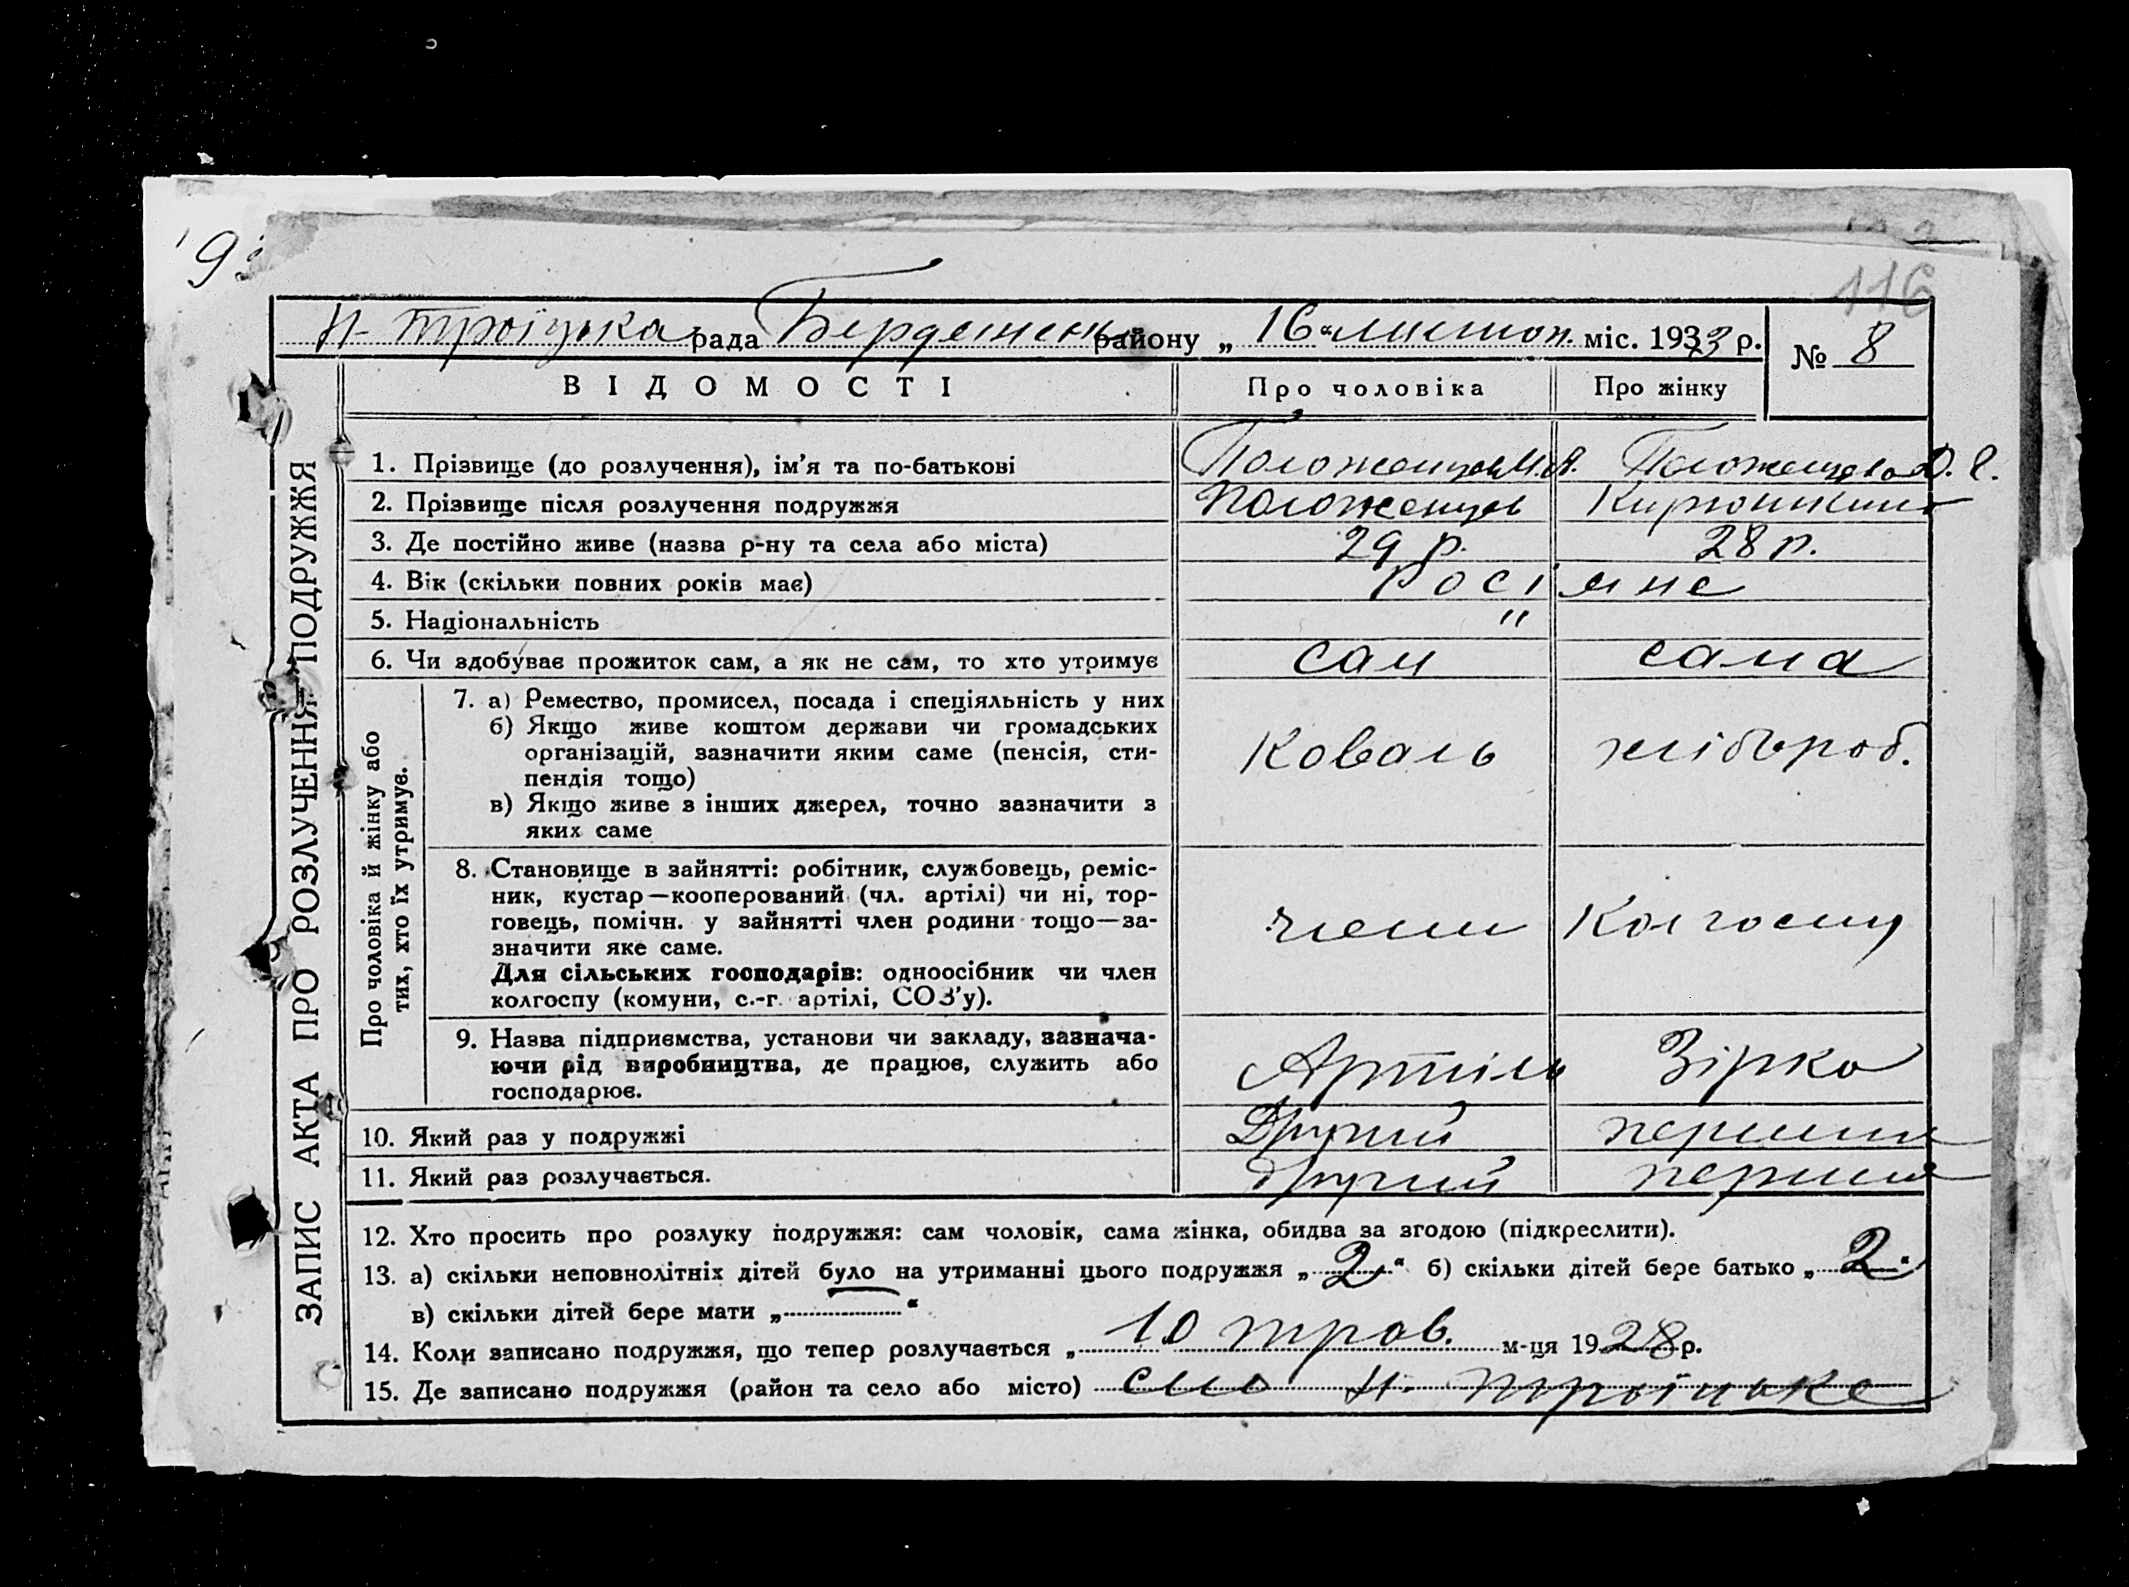 193
116
Н-Троїцька рада Бердянськ району „16“ листоп. міс. 1933 р. № 8
ВІДОМОСТІ Про чоловіка Про жінку
ЗАПИС АКТА ПРО РОЗЛУЧЕННЯ ПОДРУЖЖЯ
1. Прізвище (до розлучення), ім’я та по-батькові Положенцев Положенцева
2. Прізвище після розлучення подружжя Положенцев Кирюшкина
3. Де постійно живе (назва р-ну та села або міста) 29 р. 28 р.
4. Вік (скільки повних років має) Росіяне
5. Національність "
6. Чи здобуває прожиток сам, а як не сам, то хто утримує сам сама
Про чоловіка й жінку або
тих, хто їх утримує.
7. а) Ремество, промисел, посада і спеціяльність у них
б) Якщо живе коштом держави чи громадських
організацій, зазначити яким саме (пенсія, сти-
пендія тощо)
Коваль хліборob.
в) Якщо живе з інших джерел, точно зазначити з
яких саме
8. Становище в зайнятті: робітник, службовець, реміс-
ник, кустар—кооперований (чл. артілі) чи ні, тор-
говець, помічн. у зайнятті член родини тощо—за-
значити яке саме.
члени Колгоспу
Для сільських господарів: одноосібник чи член
колгоспу (комуни, с.-г. артілі, СОЗ’у).
9. Назва підприємства, установи чи закладу, зазнача-
ючи рід виробництва, де працює, служить або
господарює.
Артіль Зірка
10. Який раз у подружжі Другий перший
11. Який раз розлучається. другий перший
12. Хто просить про розлуку подружжя: сам чоловік, сама жінка, обидва за згодою (підкреслити).
13. а) скільки неповнолітніх дітей було на утриманні цього подружжя „2“ б) скільки дітей бере батько „2“
в) скільки дітей бере мати „ “
14. Коли записано подружжя, що тепер розлучається „10 трав. м-ця 1928 р.
15. Де записано подружжя (район та село або місто) село Н. Троїцьке